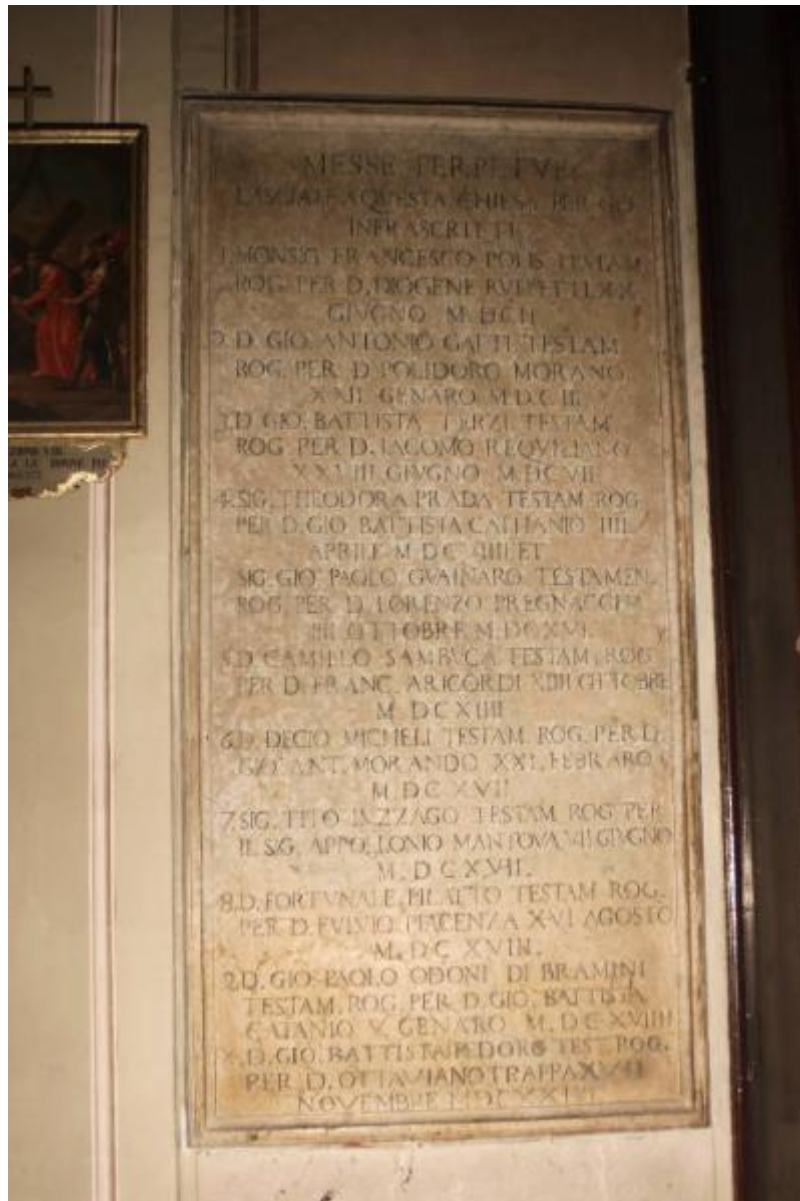 MESSE PERPETVE
LASCIATE A QVESTA CHIESA PER GLI
INFRASCRITTI
1. MONSIG FRANCESCO POLIS TESTAM
ROG. PER D. DIOGENE XX
GIVGNO M. DCII
2 D. GIO. ANTONIO GATTI TESTAM
ROG. PER D POLIDORO MORANO
XXII GENARO M.D.C III
3 D GIO. BATTISTA TERZI TESTAM
ROG PER D. IACOMO
XXVIII GIVGNO M.DCVII
4. SIG. THEODORA PRADA TESTAM ROG
PER D. GIO BATTISTA CATHANIO IIII
APRILE M D C IIII ET
SIG. GIO PAOLO GVAINARO TESTAMEN.
ROG. PER D. LORENZO
IIII OTTOBRE M.DCXVI.
5. D. CAMILLO SAMBVCA TESTAM. ROG
PER D. FRANC. ARICORDI XIIII OTTOBRE
M DCXIIII
6. D. DECIO MICHELI TESTAM ROG. PER D.
GIO. ANT. MORANDO XXI. FEBRARO
M.DC XVII
7. SIG. TITO LVZZAGO TESTAM ROG PER
IL SIG. APPOLLONIO MANTOVA VII GIVGNO
M.DCXVII.
8. D. FORTVNALE PILATTO TESTAM ROG.
PER D. FVLVIO PIACENZA XVI AGOSTO
M.DC XVIII.
9. D. GIO PAOLO ODONI DI BRAMINI
TESTAM. ROG. PER D. GIO. BATTISTA
CATANIO V. GENARO M.DCXVIIII
X. D. GIO. BATTISTA TEST. ROG.
PER D. OTTAVIANO TRAPPA
NOVEMBRE